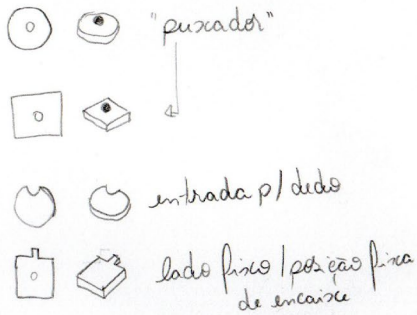 "puxador"
entrada p/ dedo
lado fixo / posição fixa
de encaixe